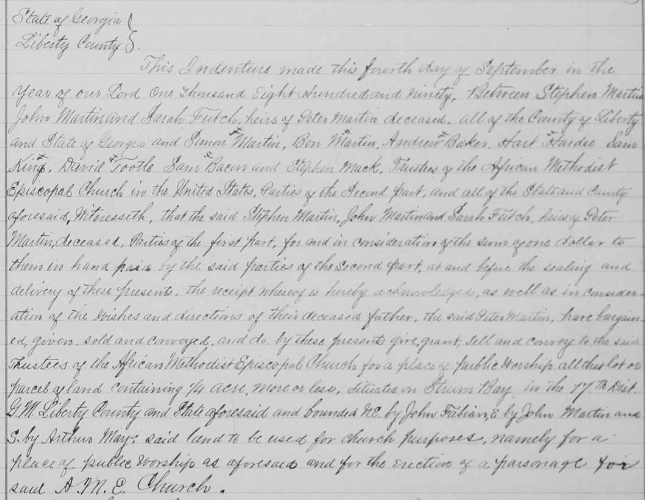 State of Georgia }
Liberty County }.
This Indenture made this fourth day of September in the
Year of our Lord One thousand Eight Hundred and Ninety, Between Stephen Martin
John Martin and Sarah Futch, heirs of Peter Martin deceased, all of the County of Liberty
and State of Georgia and Simon Martin, Ben Martin, Andrew Baker, Hart Hardee Sam
King, David Tootle Sam Bacon and Stephen Mack, Trustees of the African Methodist
Episcopal Church in the United States, Parties of the Second part, and all of the State and County
aforesaid, Witnesseth, that the said Stephen Martin, John Martin and Sarah Futch, heirs of Peter
Martin, deceased, Parties of the first part, for and in consideration of the sum of one dollar to
them in hand paid by the said parties of the Second part, at and before the sealing and
delivery of these presents, the receipt whereof is hereby acknowledged, as well as in consider-
ation of the Wishes and directions of their deceased father, the said Peter Martin, have bargain-
ed, given, sold and conveyed, and do, by these presents give, grant, sell and convey to the said
Trustees of the African Methodist Episcopal Church for a place of public Worship, all that lot or
parcel of land containing 1/4 acre, more or less, situate on Strum Bay, in the 17th Dist.
G.M. Liberty County and State aforesaid and bounded N.E. by John Fabian, E by John Martin and
S. by Arthur May; said land to be used for church purposes, namely for a
place of public Worship as aforesaid and for the erection of a parsonage for
said A.M.E. Church.